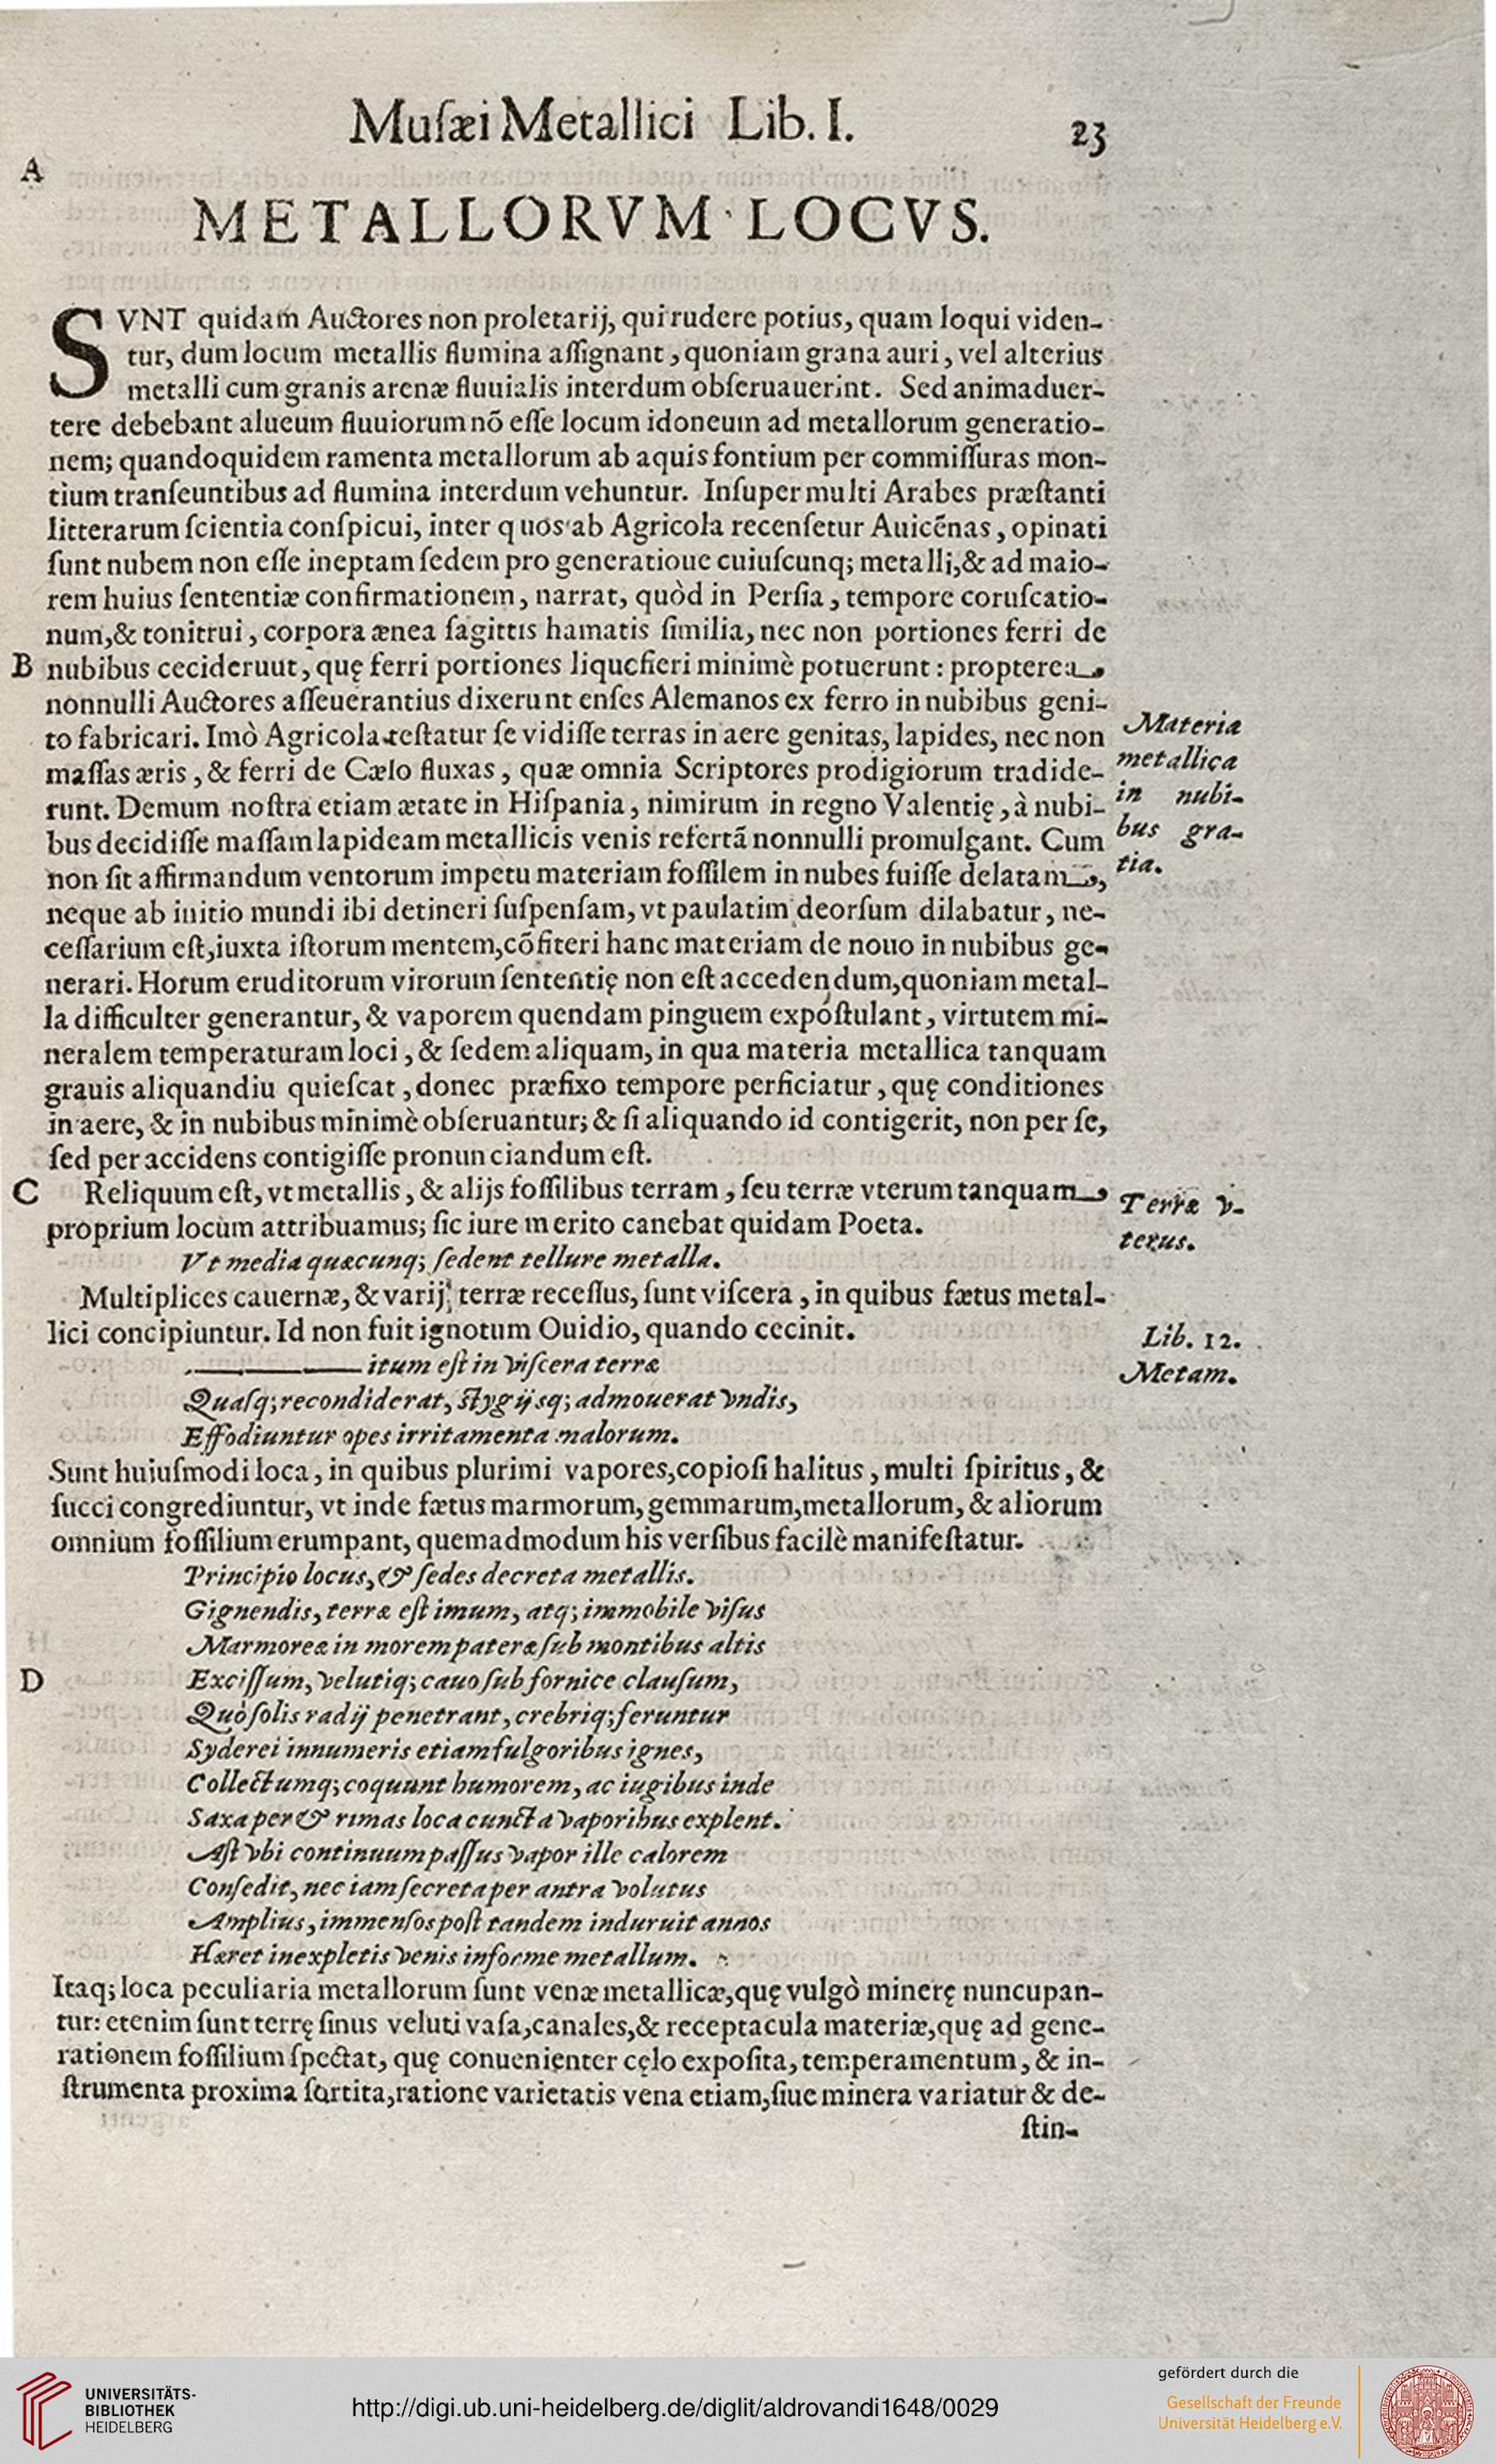 Muſæi Metallici Lib. I. 23
A
METALLORVM LOCVS.
SVNT quidam Auctores non proletarij, qui rudere potius, quam loqui viden-
tur, dum locum metallis flumina aſſignant, quoniam grana auri, vel alterius
metalli cum granis arenæ fluuialis interdum obſeruauerint. Sed animaduer-
tere debebant alueum fluuiorum nõ eſſe locum idoneum ad metallorum generatio-
nem; quandoquidem ramenta metallorum ab aquis fontium per commiſſuras mon-
tium tranſeuntibus ad flumina interdum vehuntur. Inſuper multi Arabes præſtanti
litterarum ſcientia conſpicui, inter quos ab Agricola recenſetur Auicẽnas, opinati
ſunt nubem non eſſe ineptam ſedem pro generatioue cuiuſcunq; metalli, & ad maio-
rem huius ſententiæ confirmationem, narrat, quòd in Perſia, tempore coruſcatio-
num, & tonitrui, corpora ænea ſagittis hamatis ſimilia, nec non portiones ferri de
B nubibus cecideruut, quę ferri portiones liquefieri minimè potuerunt: propterea,
nonnulli Auctores aſſeuerantius dixerunt enſes Alemanos ex ferro in nubibus geni-
to fabricari. Imò Agricola teſtatur ſe vidiſſe terras in aere genitas, lapides, nec non
maſſas æris, & ferri de Cælo fluxas, quæ omnia Scriptores prodigiorum tradide-
runt. Demum noſtra etiam ætate in Hiſpania, nimirum in regno Valentię, à nubi-
bus decidiſſe maſſam lapideam metallicis venis refertã nonnulli promulgant. Cum
non ſit affirmandum ventorum impetu materiam foſſilem in nubes fuiſſe delatam,
neque ab initio mundi ibi detineri ſuſpenſam, vt paulatim deorſum dilabatur, ne-
ceſſarium eſt, iuxta iſtorum mentem, cõfiteri hanc materiam de nouo in nubibus ge-
nerari. Horum eruditorum virorum ſententię non eſt accedendum, quoniam metal-
la difficulter generantur, & vaporem quendam pinguem expoſtulant, virtutem mi-
neralem temperaturam loci, & ſedem aliquam, in qua materia metallica tanquam
grauis aliquandiu quieſcat, donec præfixo tempore perficiatur, quę conditiones
in aere, & in nubibus minimè obſeruantur; & ſi aliquando id contigerit, non per ſe,
ſed per accidens contigiſſe pronunciandum eſt.
Materia
metallica
in nubi-
bus gra-
tia.
C Reliquum eſt, vt metallis, & alijs foſſilibus terram, ſeu terræ vterum tanquam,
proprium locum attribuamus; ſic iure merito canebat quidam Poeta.
Terræ v-
terus.
Vt media quæcunq; ſedent tellure metalla.
Multiplices cauernæ, & varij terræ receſſus, ſunt viſcera, in quibus fætus metal-
lici concipiuntur. Id non fuit ignotum Ouidio, quando cecinit.
Lib. 12.
Metam.
——— itum eſt in viſcera terræ
Quaſq; recondiderat, ſtygijsq; admouerat vndis,
Effodiuntur opes irritamenta malorum.
Sunt huiuſmodi loca, in quibus plurimi vapores, copioſi halitus, multi ſpiritus, &
ſucci congrediuntur, vt inde fætus marmorum, gemmarum, metallorum, & aliorum
omnium foſſilium erumpant, quemadmodum his verſibus facilè manifeſtatur.
Principio locus, & ſedes decreta metallis.
Gignendis, terræ eſt imum, atq; immobile viſus
Marmoreæ in morem pateræ ſub montibus altis
D Exciſſum, velutiq; cauo ſub fornice clauſum,
Quò ſolis radij penetrant, crebriq; feruntur
Syderei innumeris etiam fulgoribus ignes,
Collectumq; coquunt humorem, ac iugibus inde
Saxa per & rimas loca cuncta vaporibus explent.
Aſt vbi continuum paſſus vapor ille calorem
Conſedit, nec iam ſecreta per antra volutus
Amplius, immenſos poſt tandem induruit annos
Hæret inexpletis venis informe metallum.
Itaq; loca peculiaria metallorum ſunt venæ metallicæ, quę vulgò minerę nuncupan-
tur: etenim ſunt terrę ſinus veluti vaſa, canales, & receptacula materiæ, quę ad gene-
rationem foſſilium ſpectat, quę conuenienter cęlo expoſita, temperamentum, & in-
ſtrumenta proxima ſortita, ratione varietatis vena etiam, ſiue minera variatur & de-
ſtin-
UNIVERSITÄTS-
BIBLIOTHEK
HEIDELBERG
http://digi.ub.uni-heidelberg.de/diglit/aldrovandi1648/0029
gefördert durch die
Gesellschaft der Freunde
Universität Heidelberg e.V.